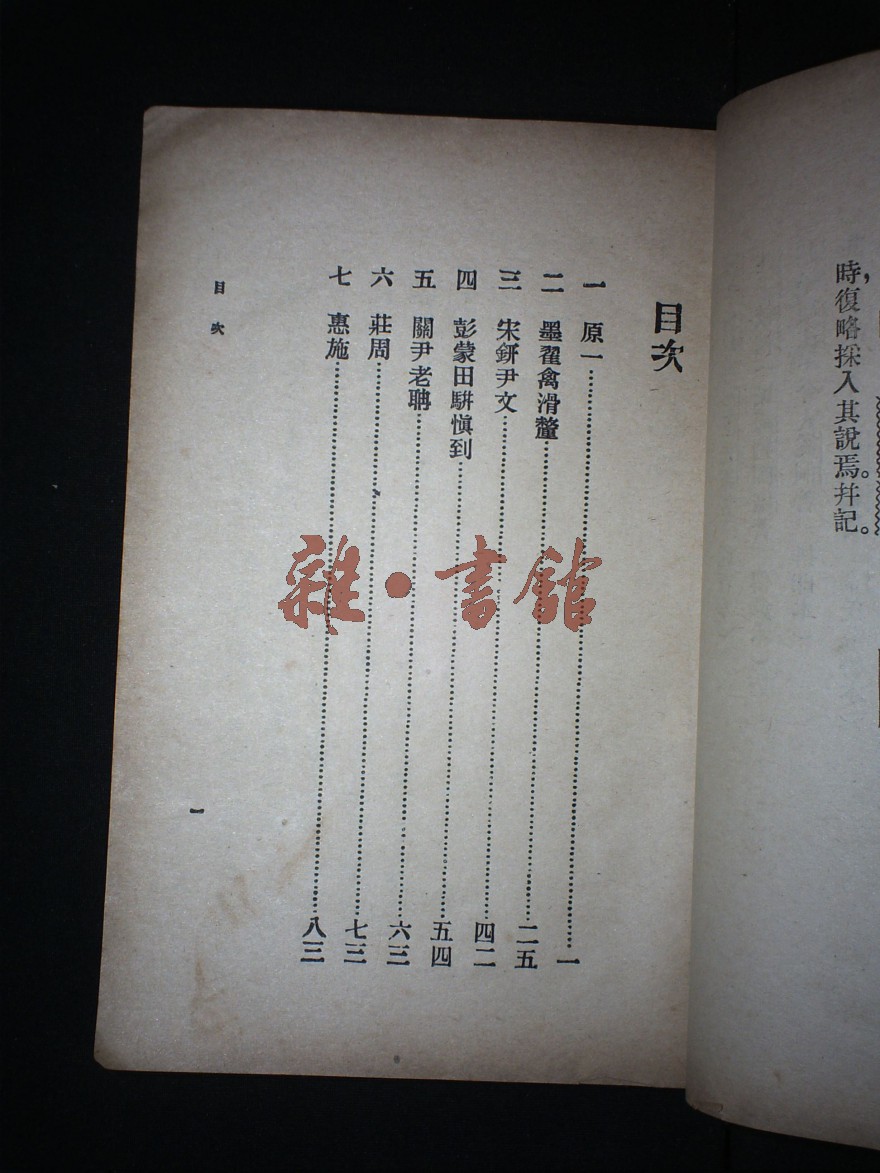 時，復略採入其說焉。幷記。
目次
一 原一……一
二 墨翟禽滑釐……二五
三 宋鈃尹文……四二
四 彭蒙田駢愼到……五四
五 關尹老聃……六三
六 莊周……七三
七 惠施……八三
目次
一
雜·書館